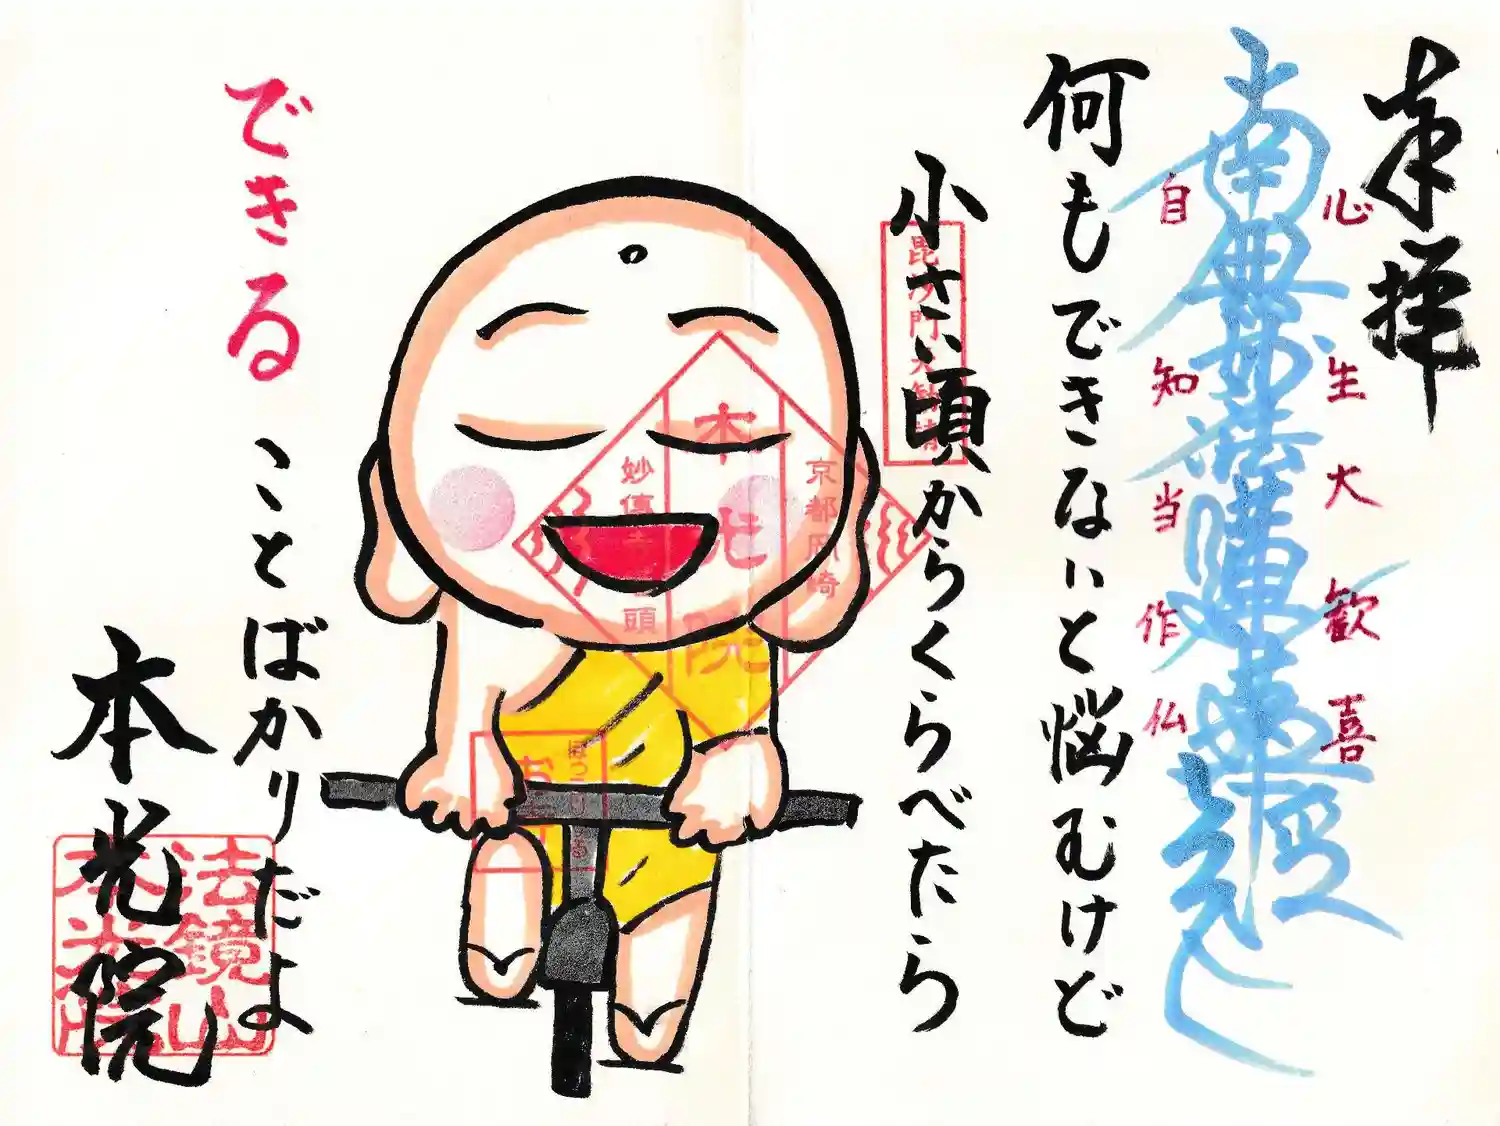 奉拝
心生大歓喜
南無妙法蓮華経
自知当作仏
何もできないと悩むけど
小さい頃からくらべたら
毘沙門天
京都岡崎
本光院
妙傳寺
頭
できる
ことばかりだよ
本光院
法鏡山
本光院